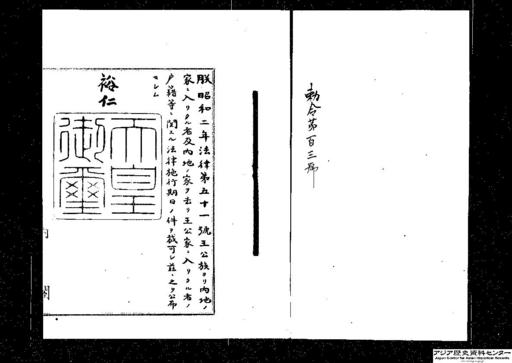 勅令第百三號
朕昭和二年法律第五十一號王公族ヨリ内地ノ
家ニ入リタル者及内地ノ家ヲ去リ王公家ニ入リタル者ノ
戸籍等ニ関スル法律施行期日ノ件ヲ裁可シ茲ニ之ヲ公布
セシム
裕仁
天皇
御璽
内
閣
アジア歴史資料センター
Japan Center for Asian Historical Records